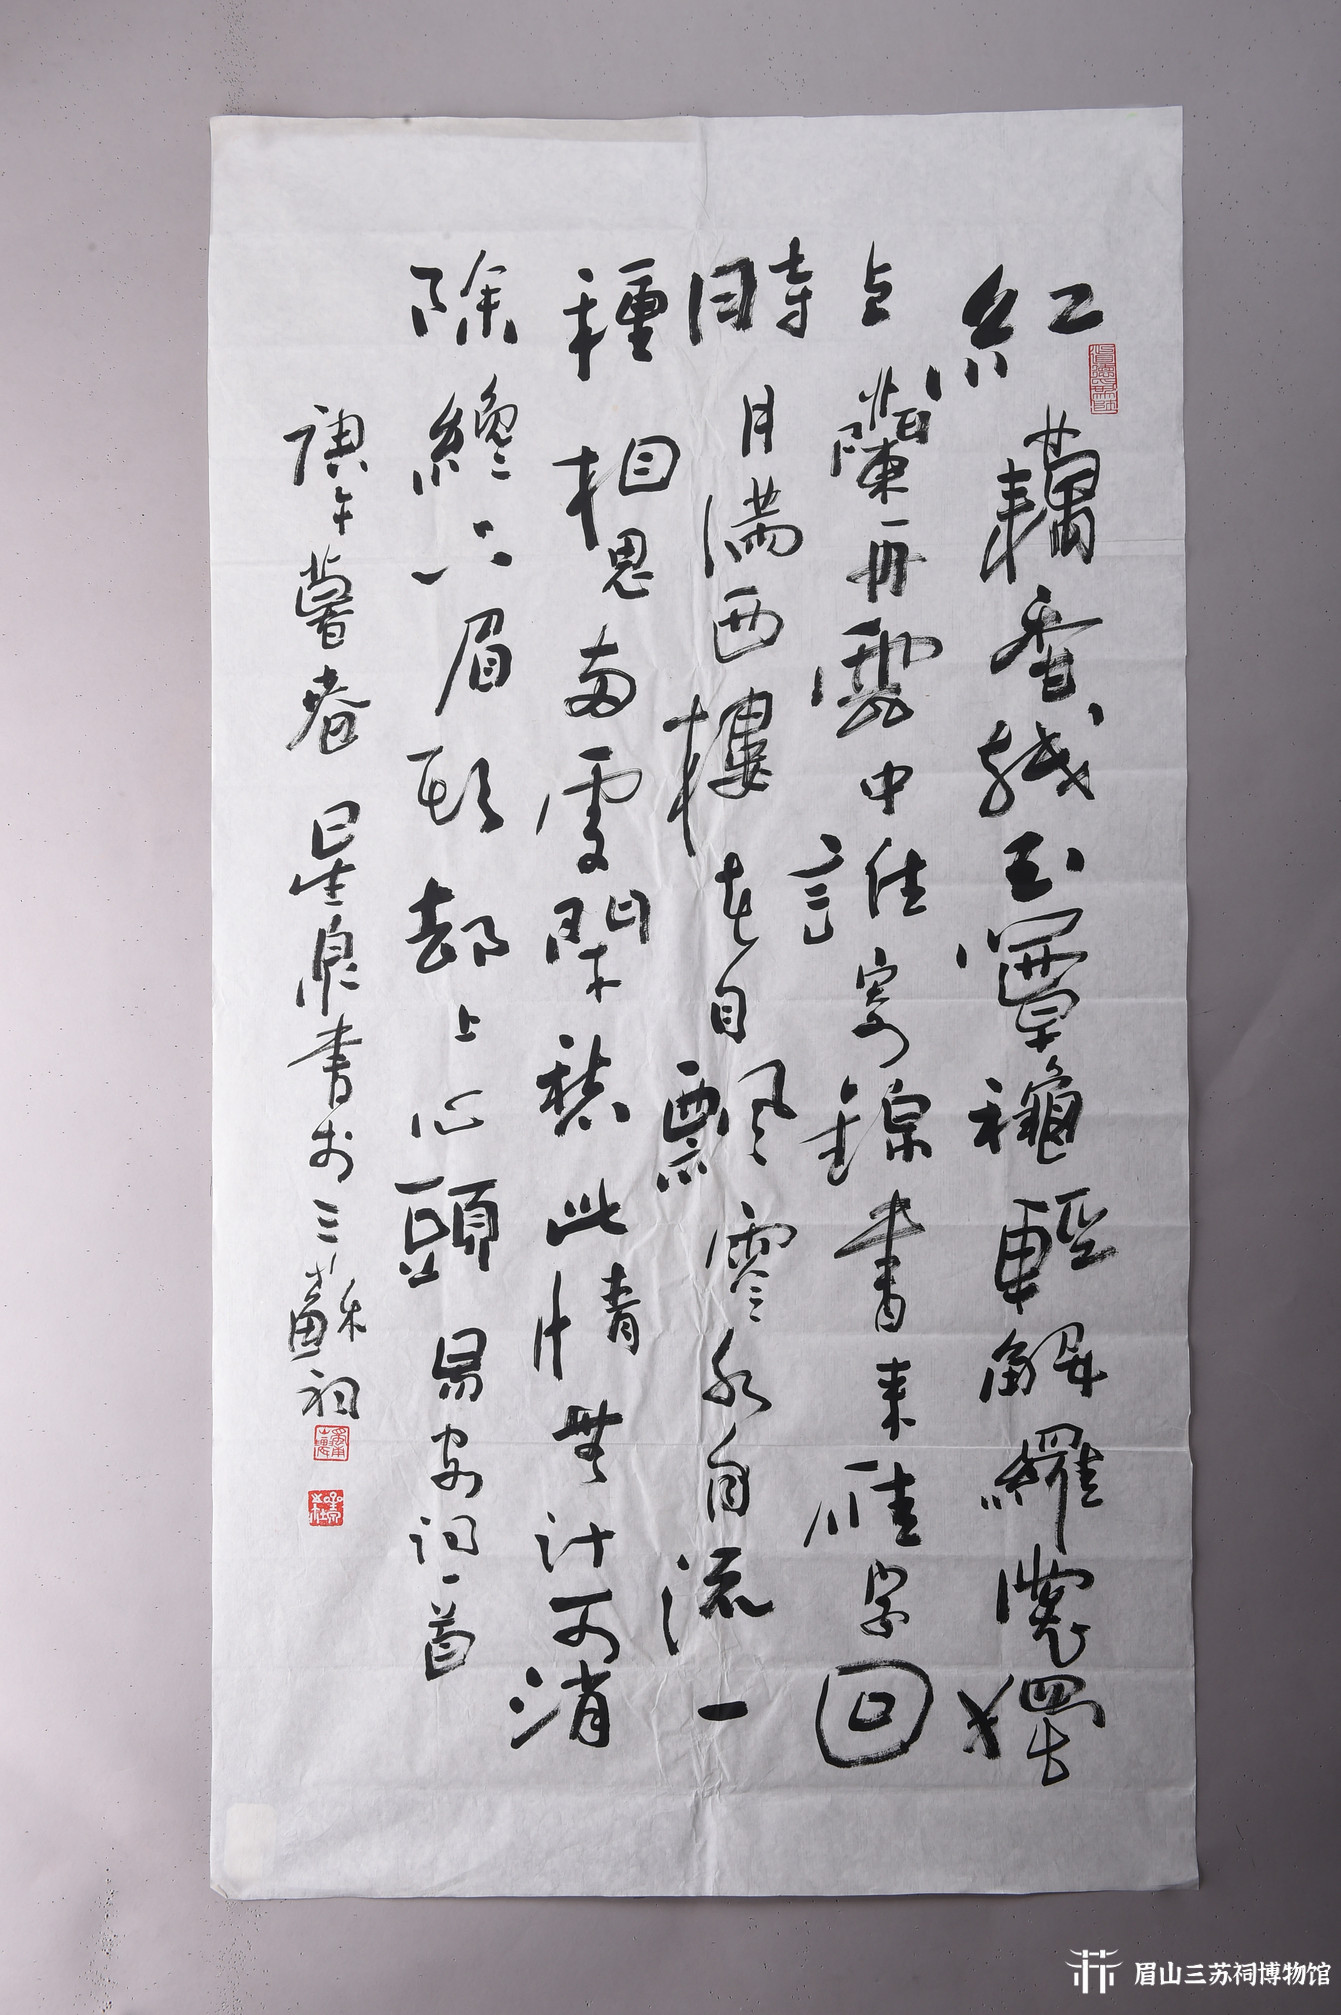 紅藕香殘玉簟穐輕解羅裳獨
上蘭舟雲中誰寄錦書來雁字回
時月滿西樓花自飄零水自流一
種相思兩處閑愁此情無計可消
除纔下眉頭却上心頭 易安詞一首
庚午暮春 星泉書於三蘇祠
眉山三苏祠博物馆